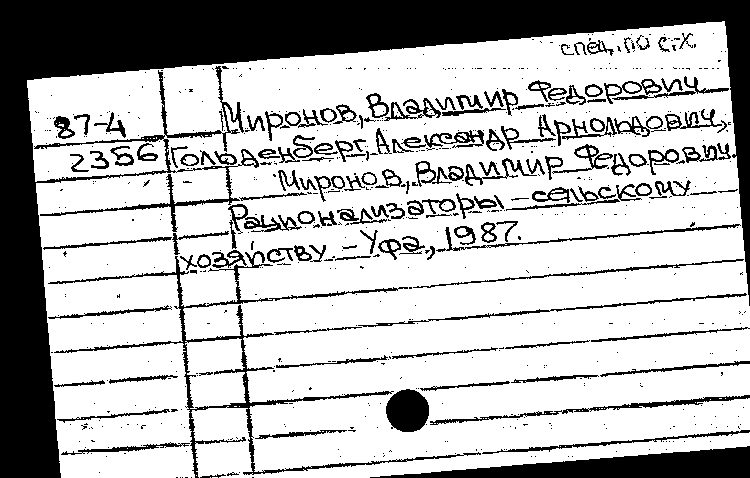 спец. по с.-х.
87-4 Миронов, Владимир Федорович
2356 Гольденберг, Александр Арнольдович,
Миронов, Владимир Федорович.
Рационализаторы – сельскому
хозяйству – Уфа, 1987.